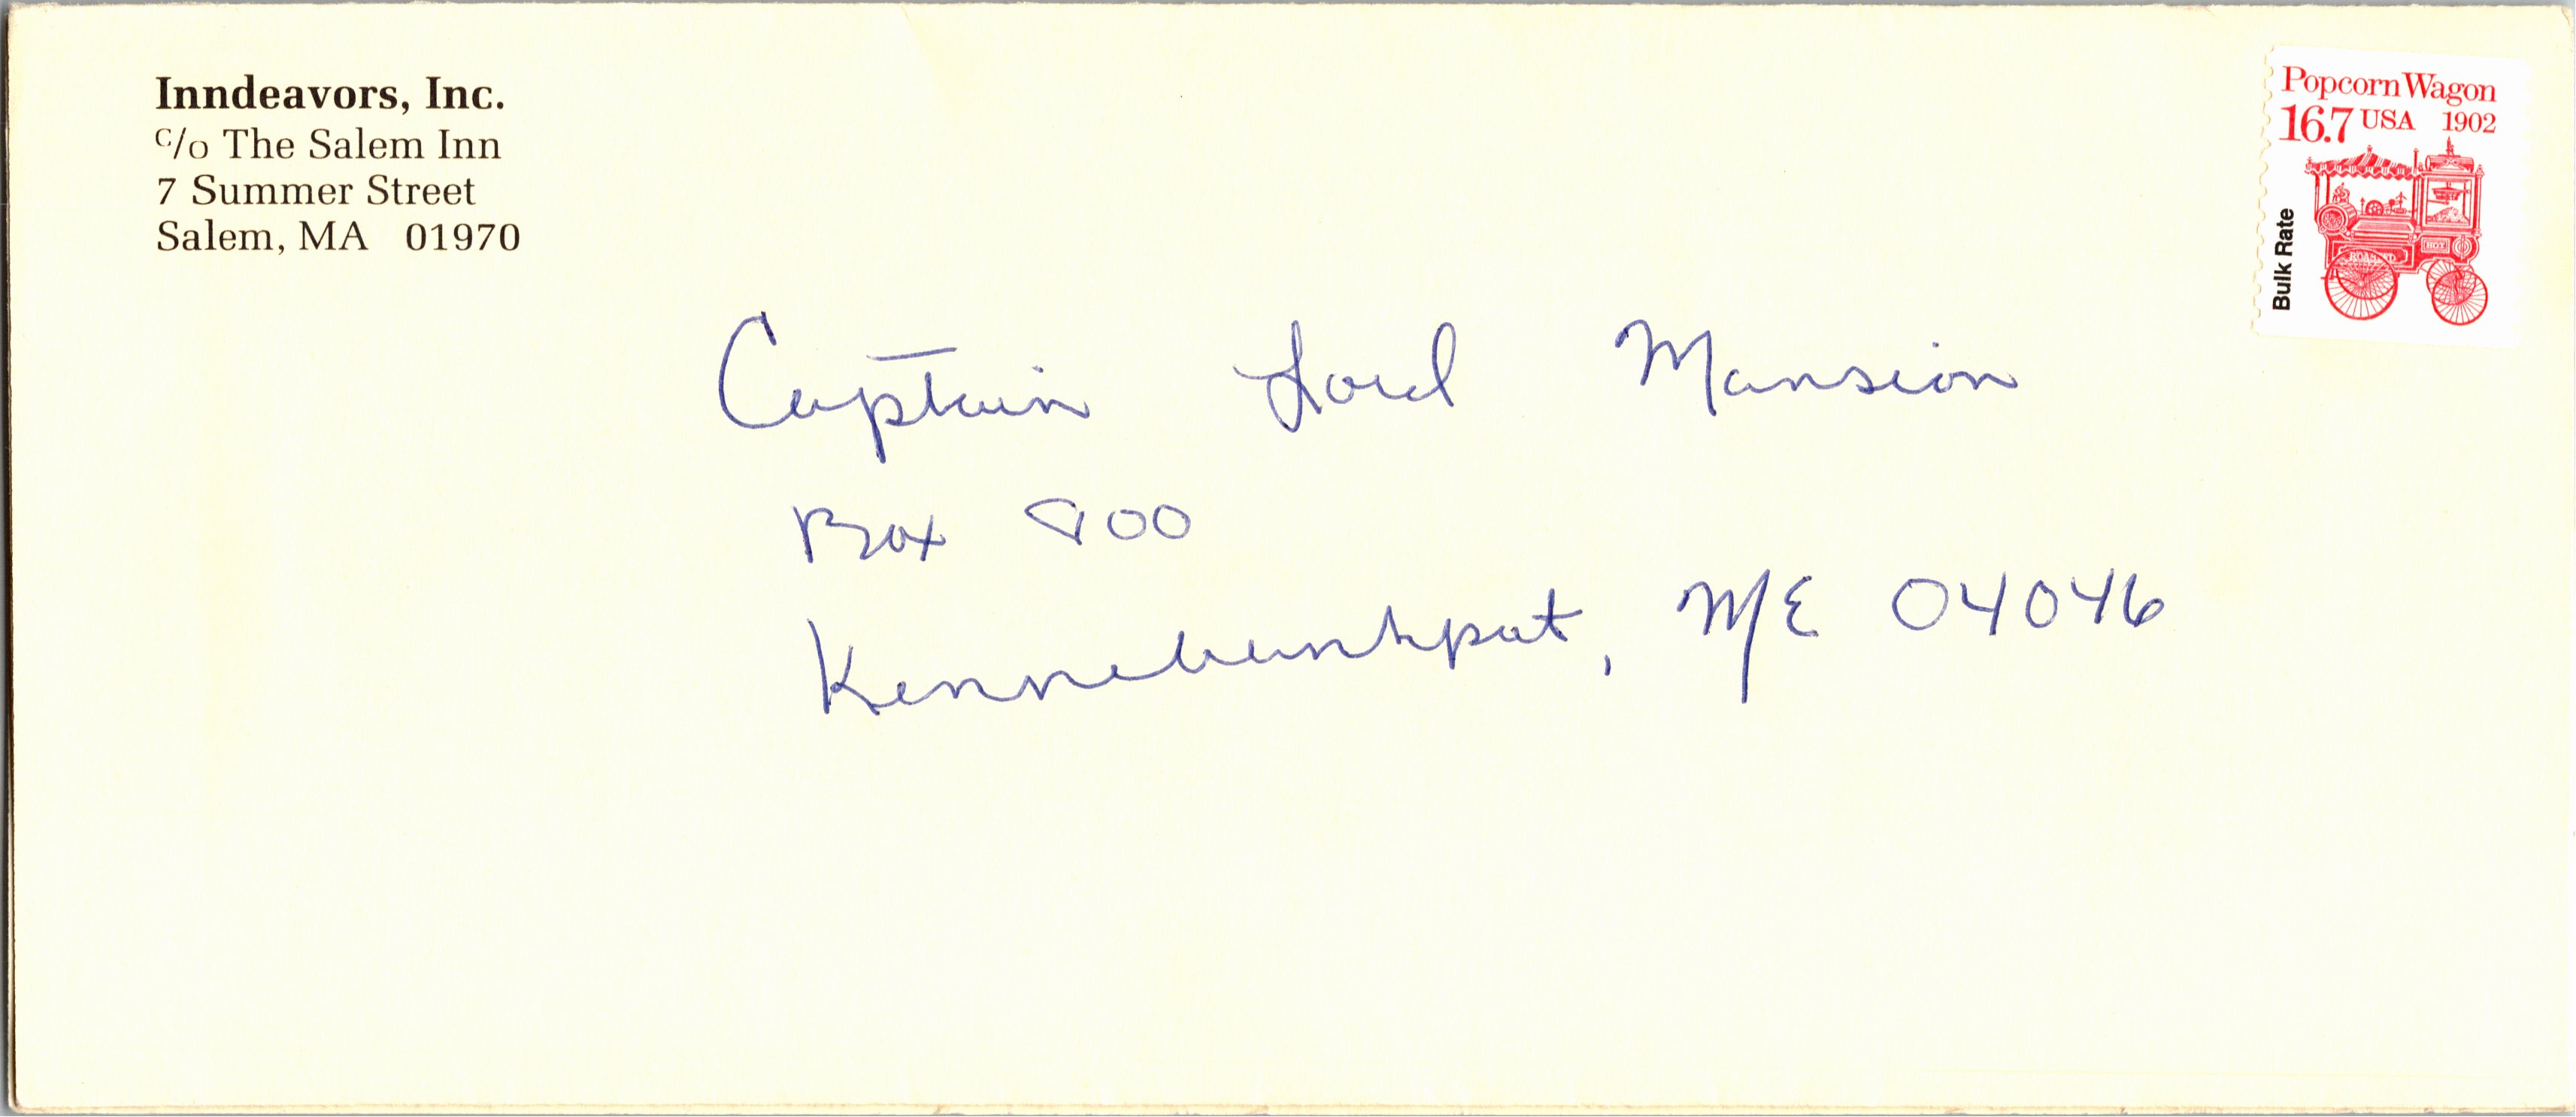 Inndeavors, Inc.
c/o The Salem Inn
7 Summer Street
Salem, MA 01970
Popcorn Wagon
16.7 USA 1902
Bulk Rate
HOT
ROASTED
Captain Lord Mansion
Box 800
Kennebunkport, ME 04046